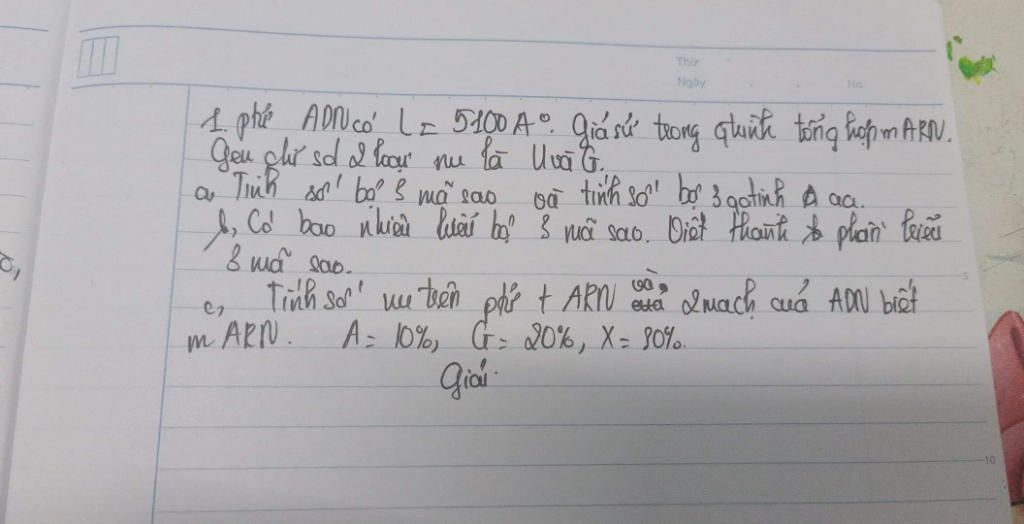 Thứ
Ngày No.
1 phtử ADN có L = 5100 A°. Giả sử trong qtrình tổng hợp mARN.
Gen chỉ sd 2 loại nu là U và G.
a, Tính số bộ 3 mã sao và tính số bộ 3 qđịnh aa.
b, Có bao nhiêu kiểu bộ 3 mã sao. Viết thành phần kiểu
3 mã sao.
c, Tính số nu trên phtử tARN và 2 mạch cuả ADN biết
mARN. A = 10%, G = 20%, X = 30%.
Giải.
5
10